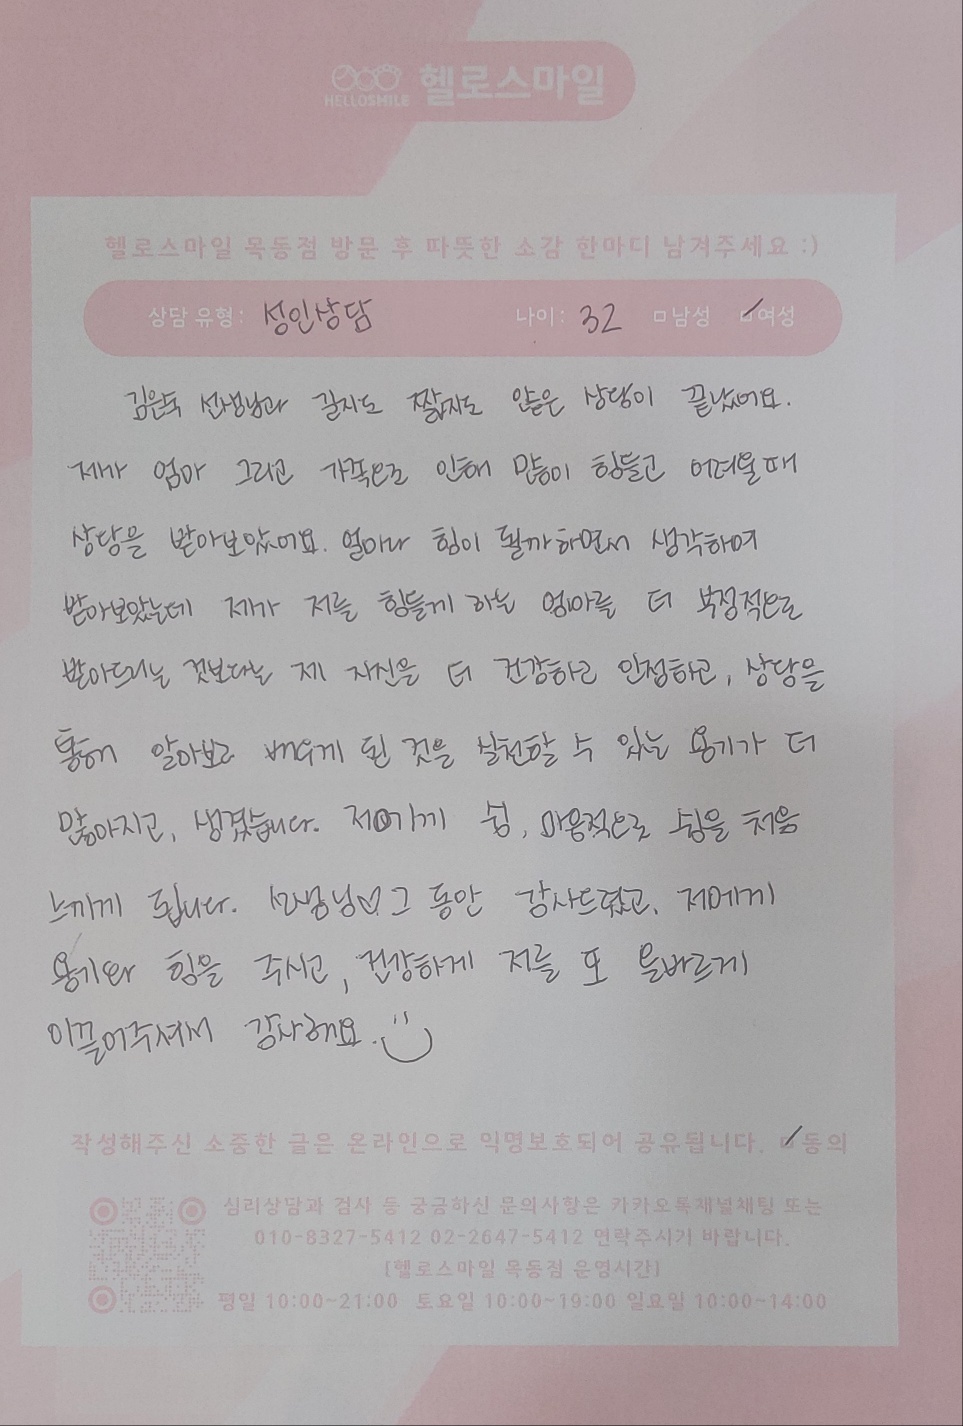 HELLOSMILE 헬로스마일
헬로스마일 목동점 방문 후 따뜻한 소감 한마디 남겨주세요 :)
상담 유형: 성인상담 나이: 32 □남성 ☑여성
김은숙 선생님과 길지도 짧지도 않은 상담이 끝났어요.
제가 엄마 그리고 가족으로 인해 많이 힘들고 어려울때
상담을 받아보았어요. 얼마나 힘이 될까하면서 생각하며
받아보았는데 제가 저를 힘들게 하는 엄마를 더 부정적으로
받아드리는 것보다는 제 자신을 더 건강하고 인정하고, 상담을
통해 알아보고 배우게 된 것을 실천할 수 있는 용기가 더
많아지고, 생겼습니다. 저에게 쉼, 마음적으로 쉼을 처음
느끼게 됩니다. 선생님♡ 그 동안 감사드렸고, 저에게
용기와 힘을 주시고, 건강하게 저를 또 올바르게
이끌어주셔서 감사해요.
작성해주신 소중한 글은 온라인으로 익명보호되어 공유됩니다. ☑동의
심리상담과 검사 등 궁금하신 문의사항은 카카오톡채널채팅 또는
010-8327-5412 02-2647-5412 연락주시기 바랍니다.
[헬로스마일 목동점 운영시간]
평일 10:00~21:00 토요일 10:00~19:00 일요일 10:00~14:00